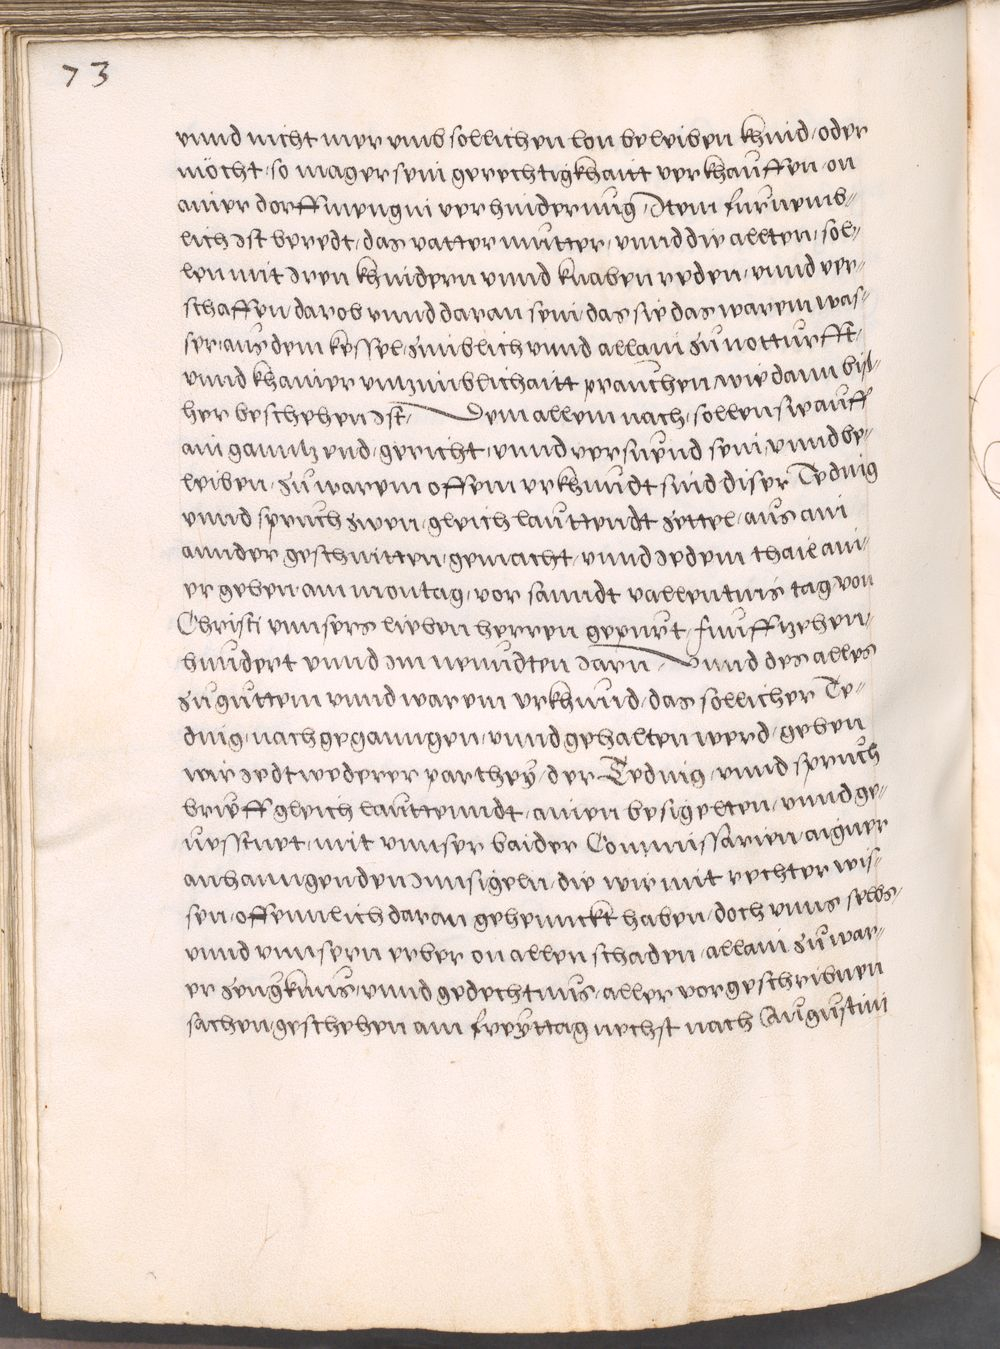 73
vnnd nicht mer vmb sollichen lon beleiben khind, oder
möcht, so mag er sein gerechtigkhaitt verkhauffen, on
ainer dorffmengin verhinderung, Item furnemb-
lich Ist beredt, das vatter mutter, vnnd die allten, sol-
len mit Iren khindern vnnd knaben reden, vnnd ver-
schaffen, darob vnnd daran sein, das sie das warem was-
ser, aus dem kessel, zimblich vnnd allain zu notturfft,
vnnd khainer vnzimblichaitt prauchen, wie dann biß-
her beschehen Ist, Dem allem nach, sollen sie auff
ain ganntz end, gericht, vnnd versuend sein, vnnd be-
leiben, zu warem offem vrkhundt sind diser Teding
vnnd spruch zwen, gleich lauttendt zettel, aus ain
annder geschnitten, gemacht, vnnd Jedem thail ain-
er geben, am montag, vor sanndt vallentins tag, von
Christi vnnsers lieben herren gepurt, funffzehen-
hundert vnnd Im neundten Jarn, Vnnd des alles
zu guttem vnnd warem vrkhund, das sollicher Te-
ding, nachgegangen, vnnd gehalten werd, geben
wir Jedtwederer parthey, der Teding, vnnd spruch
brieff gleich lauttenndt, ainen besigelten, vnnd ge-
uesstnet, mit vnnser baider Commissarien aigner
anhanngenden Innsigeln, die wir mit rechter wis-
sen, offennlich daran gehennckt haben, doch vnns selbs,
vnnd vnnsern erben on allen schaden, allain zu war-
er zeugknus, vnnd gedechtnus, aller vorgeschribnen
sachen, geschehen am freyttag nechst nach Augustini